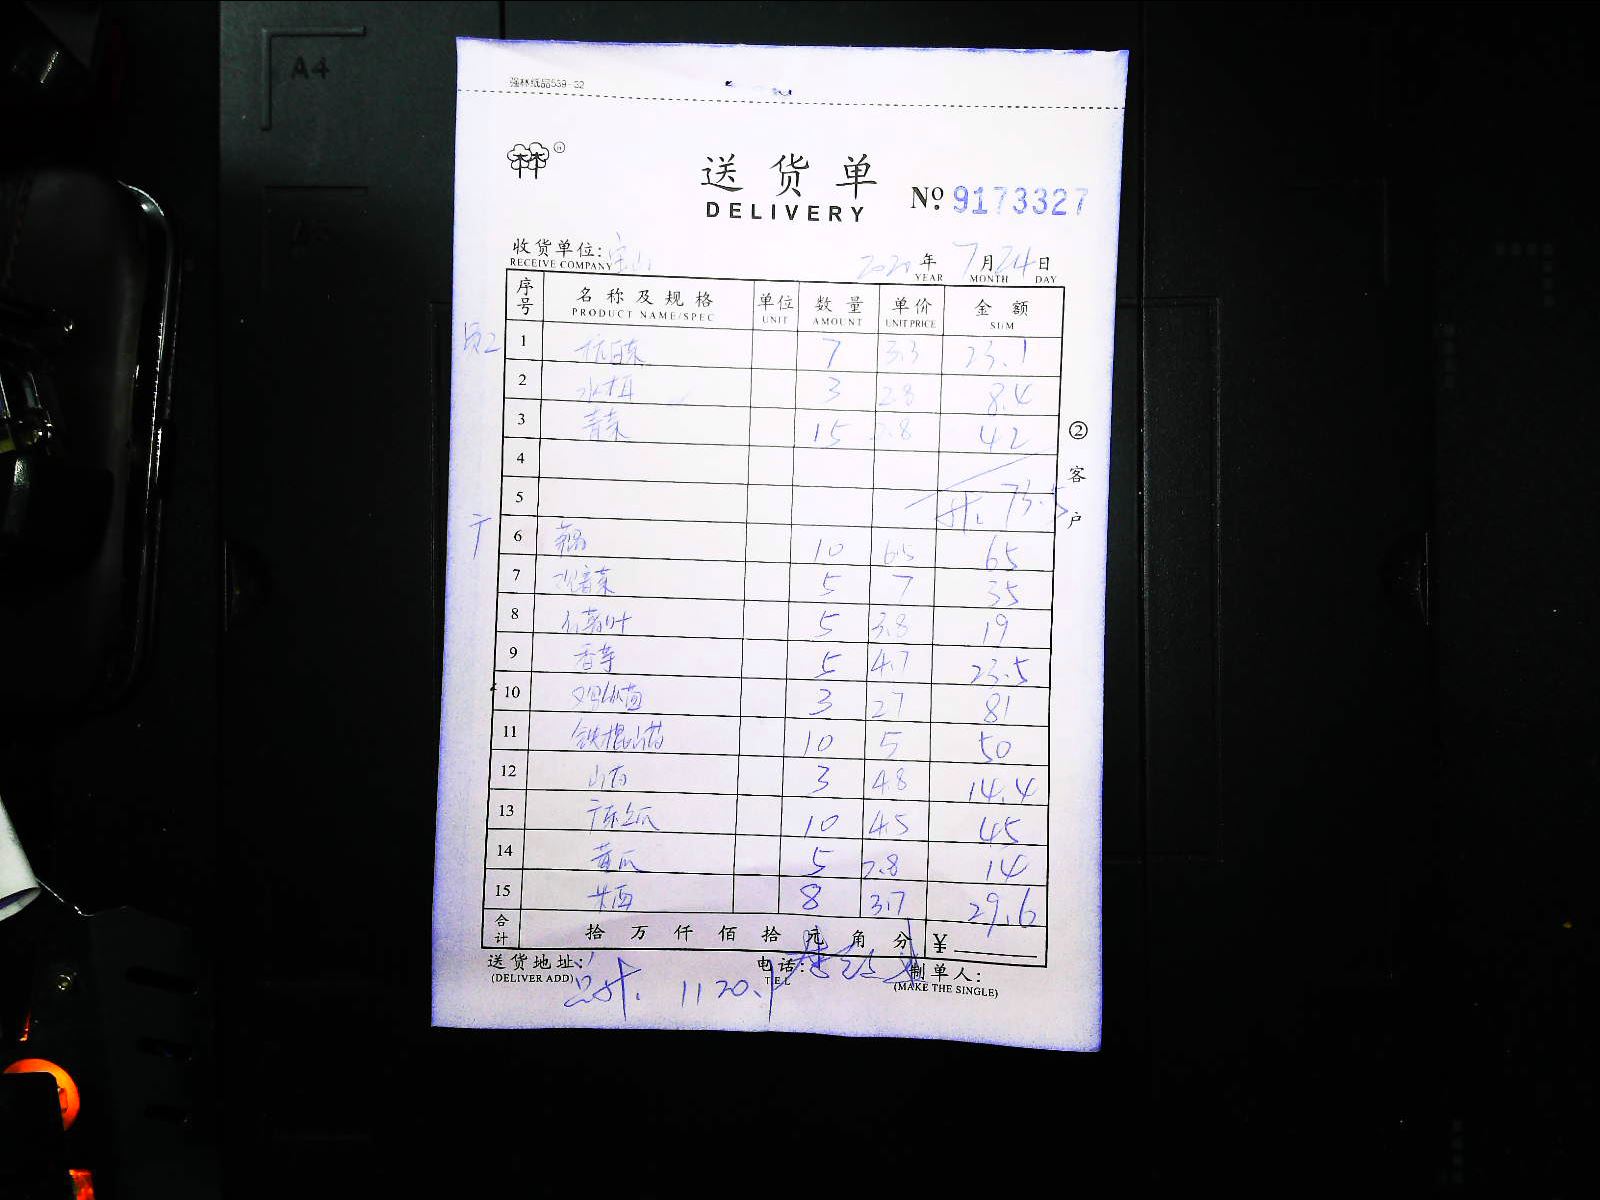 强林纸品539-32
送货单
DELIVERY
No. 9173327
收货单位: 宝山
RECEIVE COMPANY
2020年 7月24日
YEAR MONTH DAY
序号 名称及规格 单位 数量 单价 金额
PRODUCT NAME/SPEC UNIT AMOUNT UNIT PRICE SUM
1 7 3.3 23.1
2 水木耳 3 2.8 8.4
3 青菜 15 2.8 42
4
5 73.5
6 10 6.5 65
7 观音菜 5 7 35
8 5 3.8 19
9 香芋 5 4.7 23.5
10 3 27 81
11 铁棍山药 10 5 50
12 山药 3 4.8 14.4
13 广东丝瓜 10 4.5 45
14 黄瓜 5 2.8 14
15 8 3.7 29.6
合计 拾 万 仟 佰 拾 元 角 分 ¥
② 客户
送货地址: 电话: 制单人:
(DELIVER ADD) TEL (MAKE THE SINGLE)
总计. 1120.1
A4